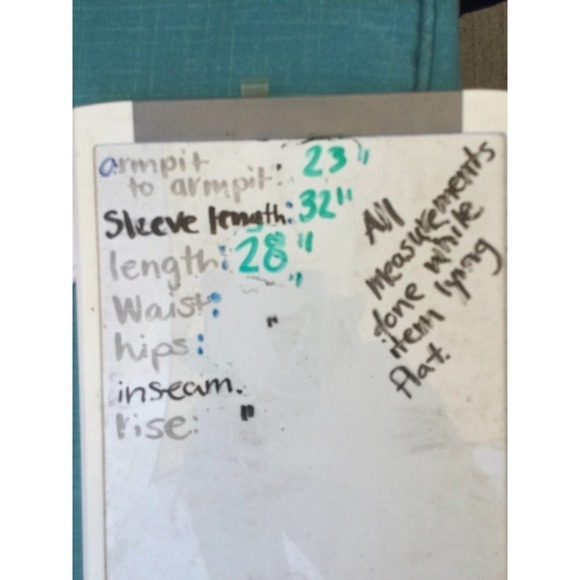 armpit
to armpit: 23"
Sleeve length: 32"
length: 28"
Waist: "
hips: "
inseam.
rise: "
All
measurements
done while
item lying
flat.